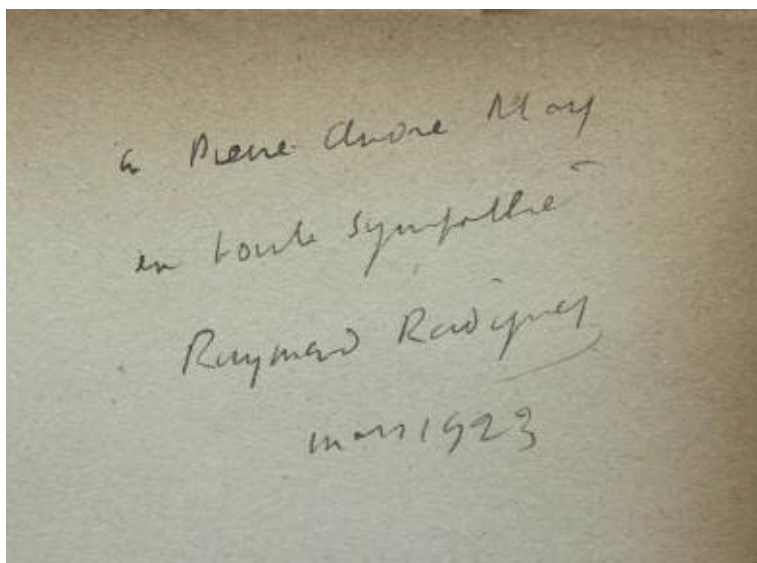 à Pierre André May
en toute sympathie
Raymond Radiguet
mars 1923